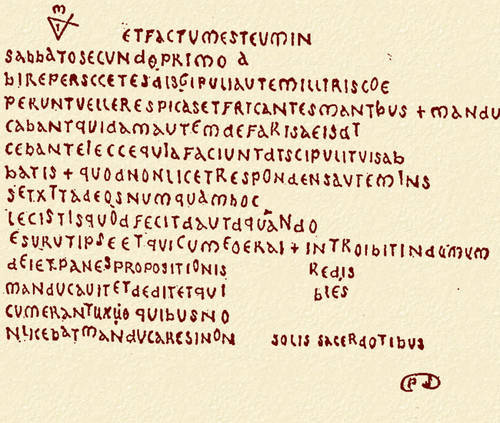 ETFACTUMESTEUMIN
SABBATOSECUNDOPRIMO A
BIREPERSCCETESDISGIPULIAUTEMILLIRISCOE
PERUNTVELLERESPICASETFRICANTESMANIBUS + MANDU
CABANTQUIDAMAUTEMDEFARISAEISDT
CEBANTEIECCEQUIAFACIUNTDISCIPULITUISAB
BATIS + QUODNONLICETRESPONDENSAUTEMINS
SETXTTADEOSNUMQUAMBOC
LECISTISQUODFECITDAUTDQUANDO
ESURUTIPSEETQUICUMEOERAI + INTROIBITINDUMUM
DEIETPANESPROPOSITIONIS REDIS
MANDUCAUITETDEDITETQUI BLES
CUMERANTUXUO QUIBUSNO
NLICEBATMANDUCARESINON SOLIS SACERDOTIBUS
PS